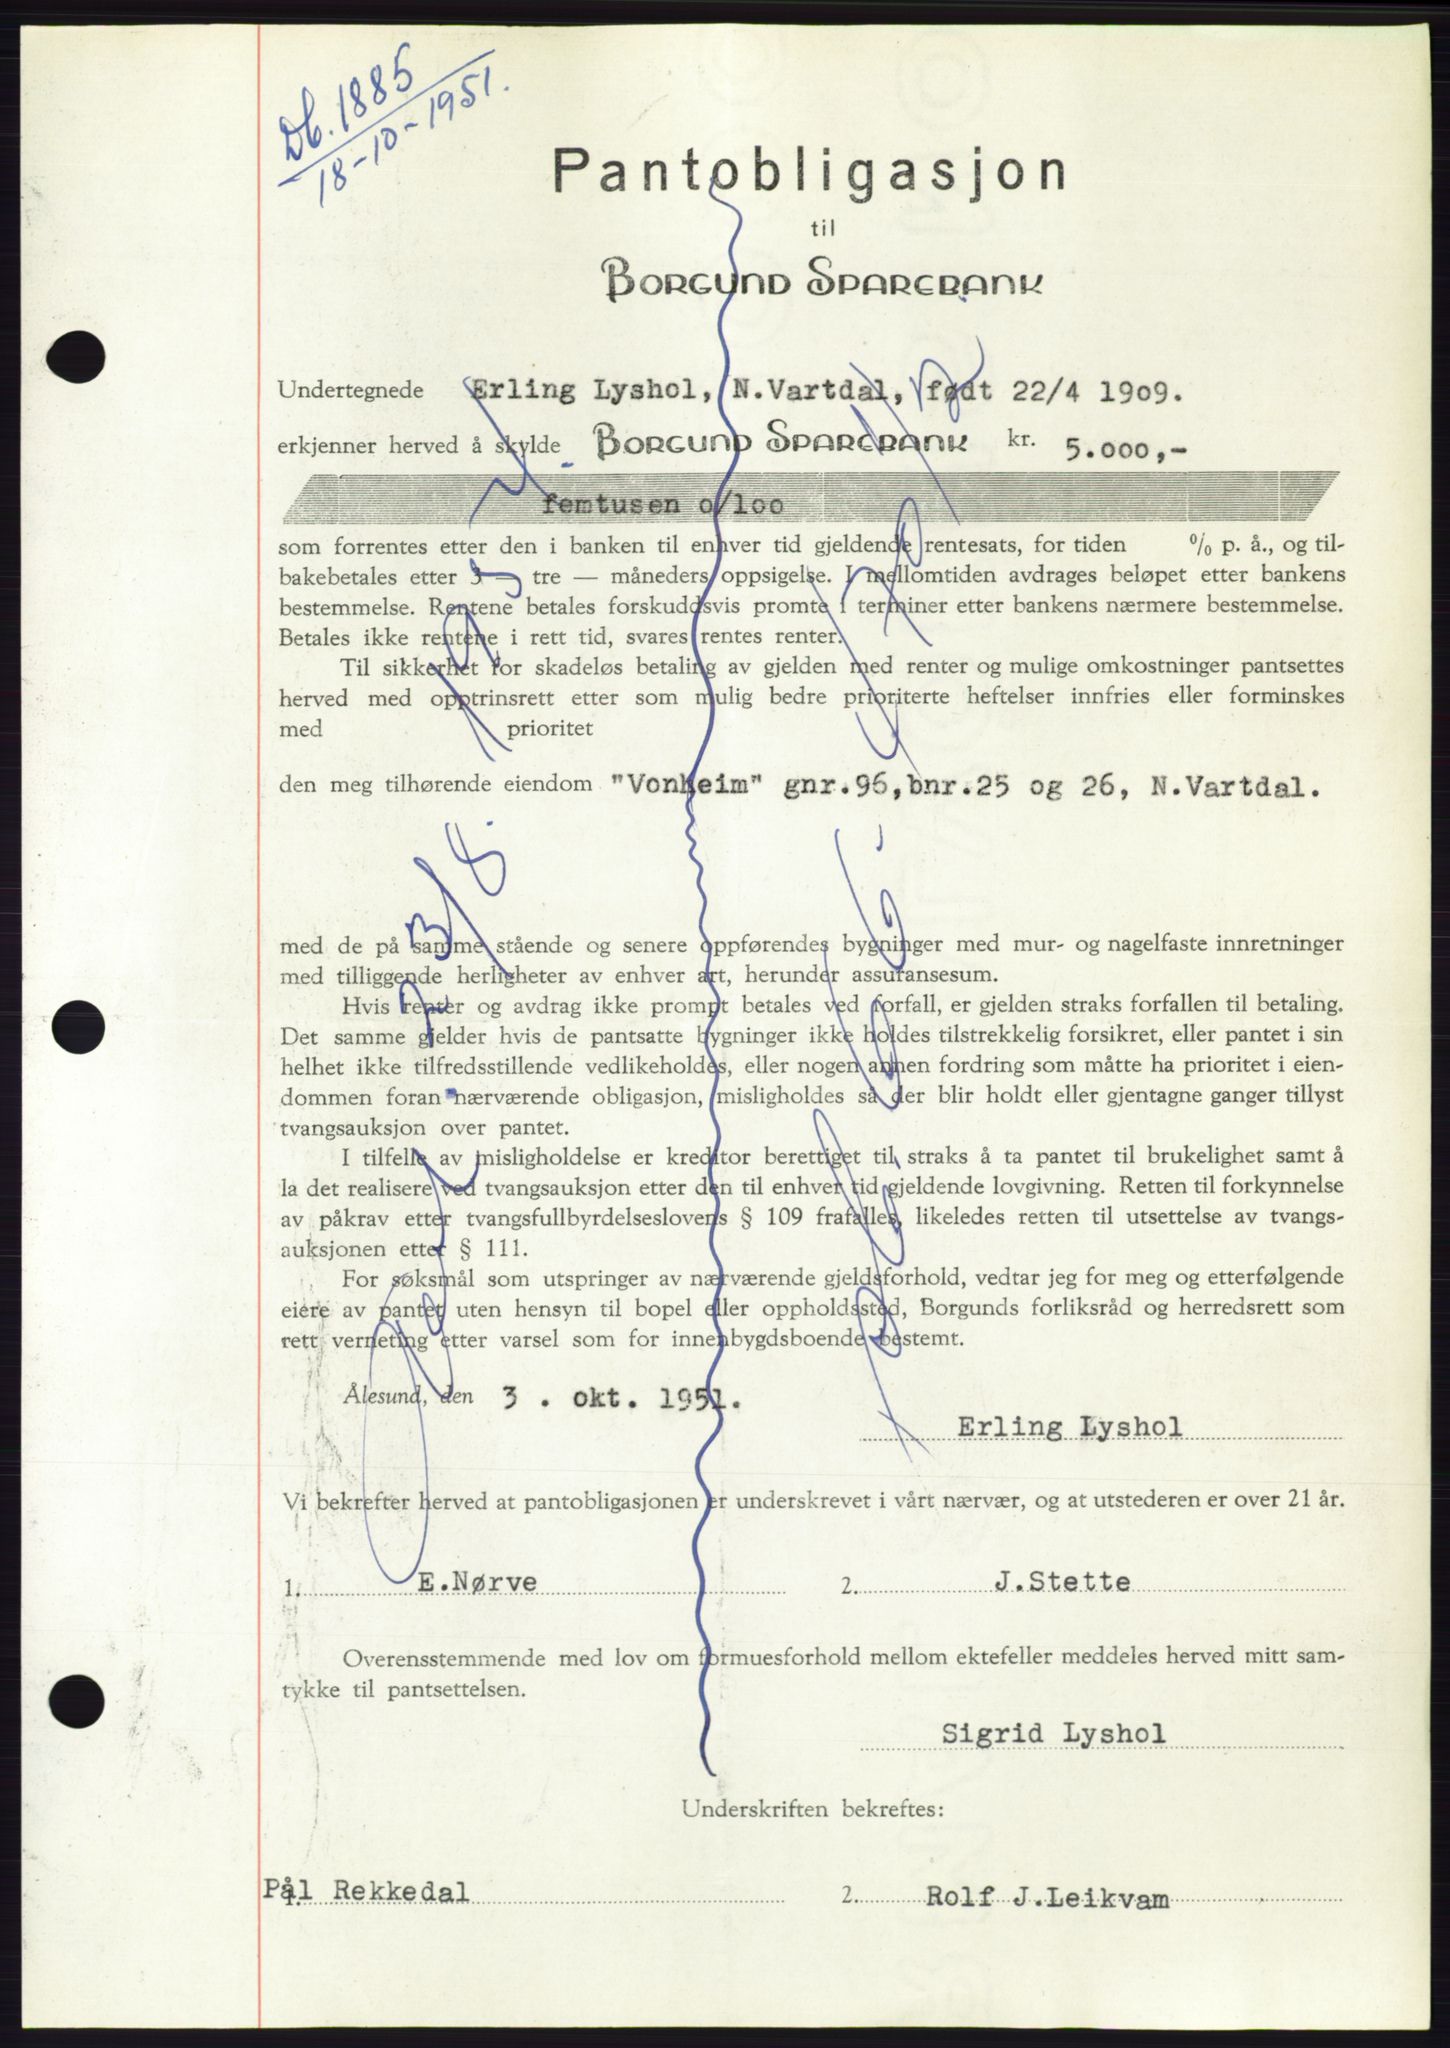 Db. 1885
18-10-1951.
Pantobligasjon
til
BORGUND SPAREBANK
Undertegnede Erling Lyshol, N.Vartdal, født 22/4 1909.
erkjenner herved å skylde BORGUND SPAREBANK kr. 5.000,-
femtusen o/loo
som forrentes etter den i banken til enhver tid gjeldende rentesats, for tiden % p. å., og til-
bakebetales etter 3 — tre — måneders oppsigelse. I mellomtiden avdrages beløpet etter bankens
bestemmelse. Rentene betales forskuddsvis promte i terminer etter bankens nærmere bestemmelse.
Betales ikke rentene i rett tid, svares rentes renter.
Til sikkerhet for skadeløs betaling av gjelden med renter og mulige omkostninger pantsettes
herved med opptrinsrett etter som mulig bedre prioriterte heftelser innfries eller forminskes
med prioritet
den meg tilhørende eiendom "Vonheim" gnr.96,bnr.25 og 26, N.Vartdal.
med de på samme stående og senere oppførendes bygninger med mur- og nagelfaste innretninger
med tilliggende herligheter av enhver art, herunder assuransesum.
Hvis renter og avdrag ikke prompt betales ved forfall, er gjelden straks forfallen til betaling.
Det samme gjelder hvis de pantsatte bygninger ikke holdes tilstrekkelig forsikret, eller pantet i sin
helhet ikke tilfredsstillende vedlikeholdes, eller nogen annen fordring som måtte ha prioritet i eien-
dommen foran nærværende obligasjon, misligholdes så der blir holdt eller gjentagne ganger tillyst
tvangsauksjon over pantet.
I tilfelle av misligholdelse er kreditor berettiget til straks å ta pantet til brukelighet samt å
la det realisere ved tvangsauksjon etter den til enhver tid gjeldende lovgivning. Retten til forkynnelse
av påkrav etter tvangsfullbyrdelseslovens § 109 frafalles, likeledes retten til utsettelse av tvangs-
auksjonen etter § 111.
For søksmål som utspringer av nærværende gjeldsforhold, vedtar jeg for meg og etterfølgende
eiere av pantet uten hensyn til bopel eller oppholdssted, Borgunds forliksråd og herredsrett som
rett verneting etter varsel som for innenbygdsboende bestemt.
Ålesund, den 3 . okt. 1951.
Erling Lyshol
Vi bekrefter herved at pantobligasjonen er underskrevet i vårt nærvær, og at utstederen er over 21 år.
1. E.Nørve 2. J.Stette
Overensstemmende med lov om formuesforhold mellom ektefeller meddeles herved mitt sam-
tykke til pantsettelsen.
Sigrid Lyshol
Underskriften bekreftes:
1. Pål Rekkedal 2. Rolf J.Leikvam